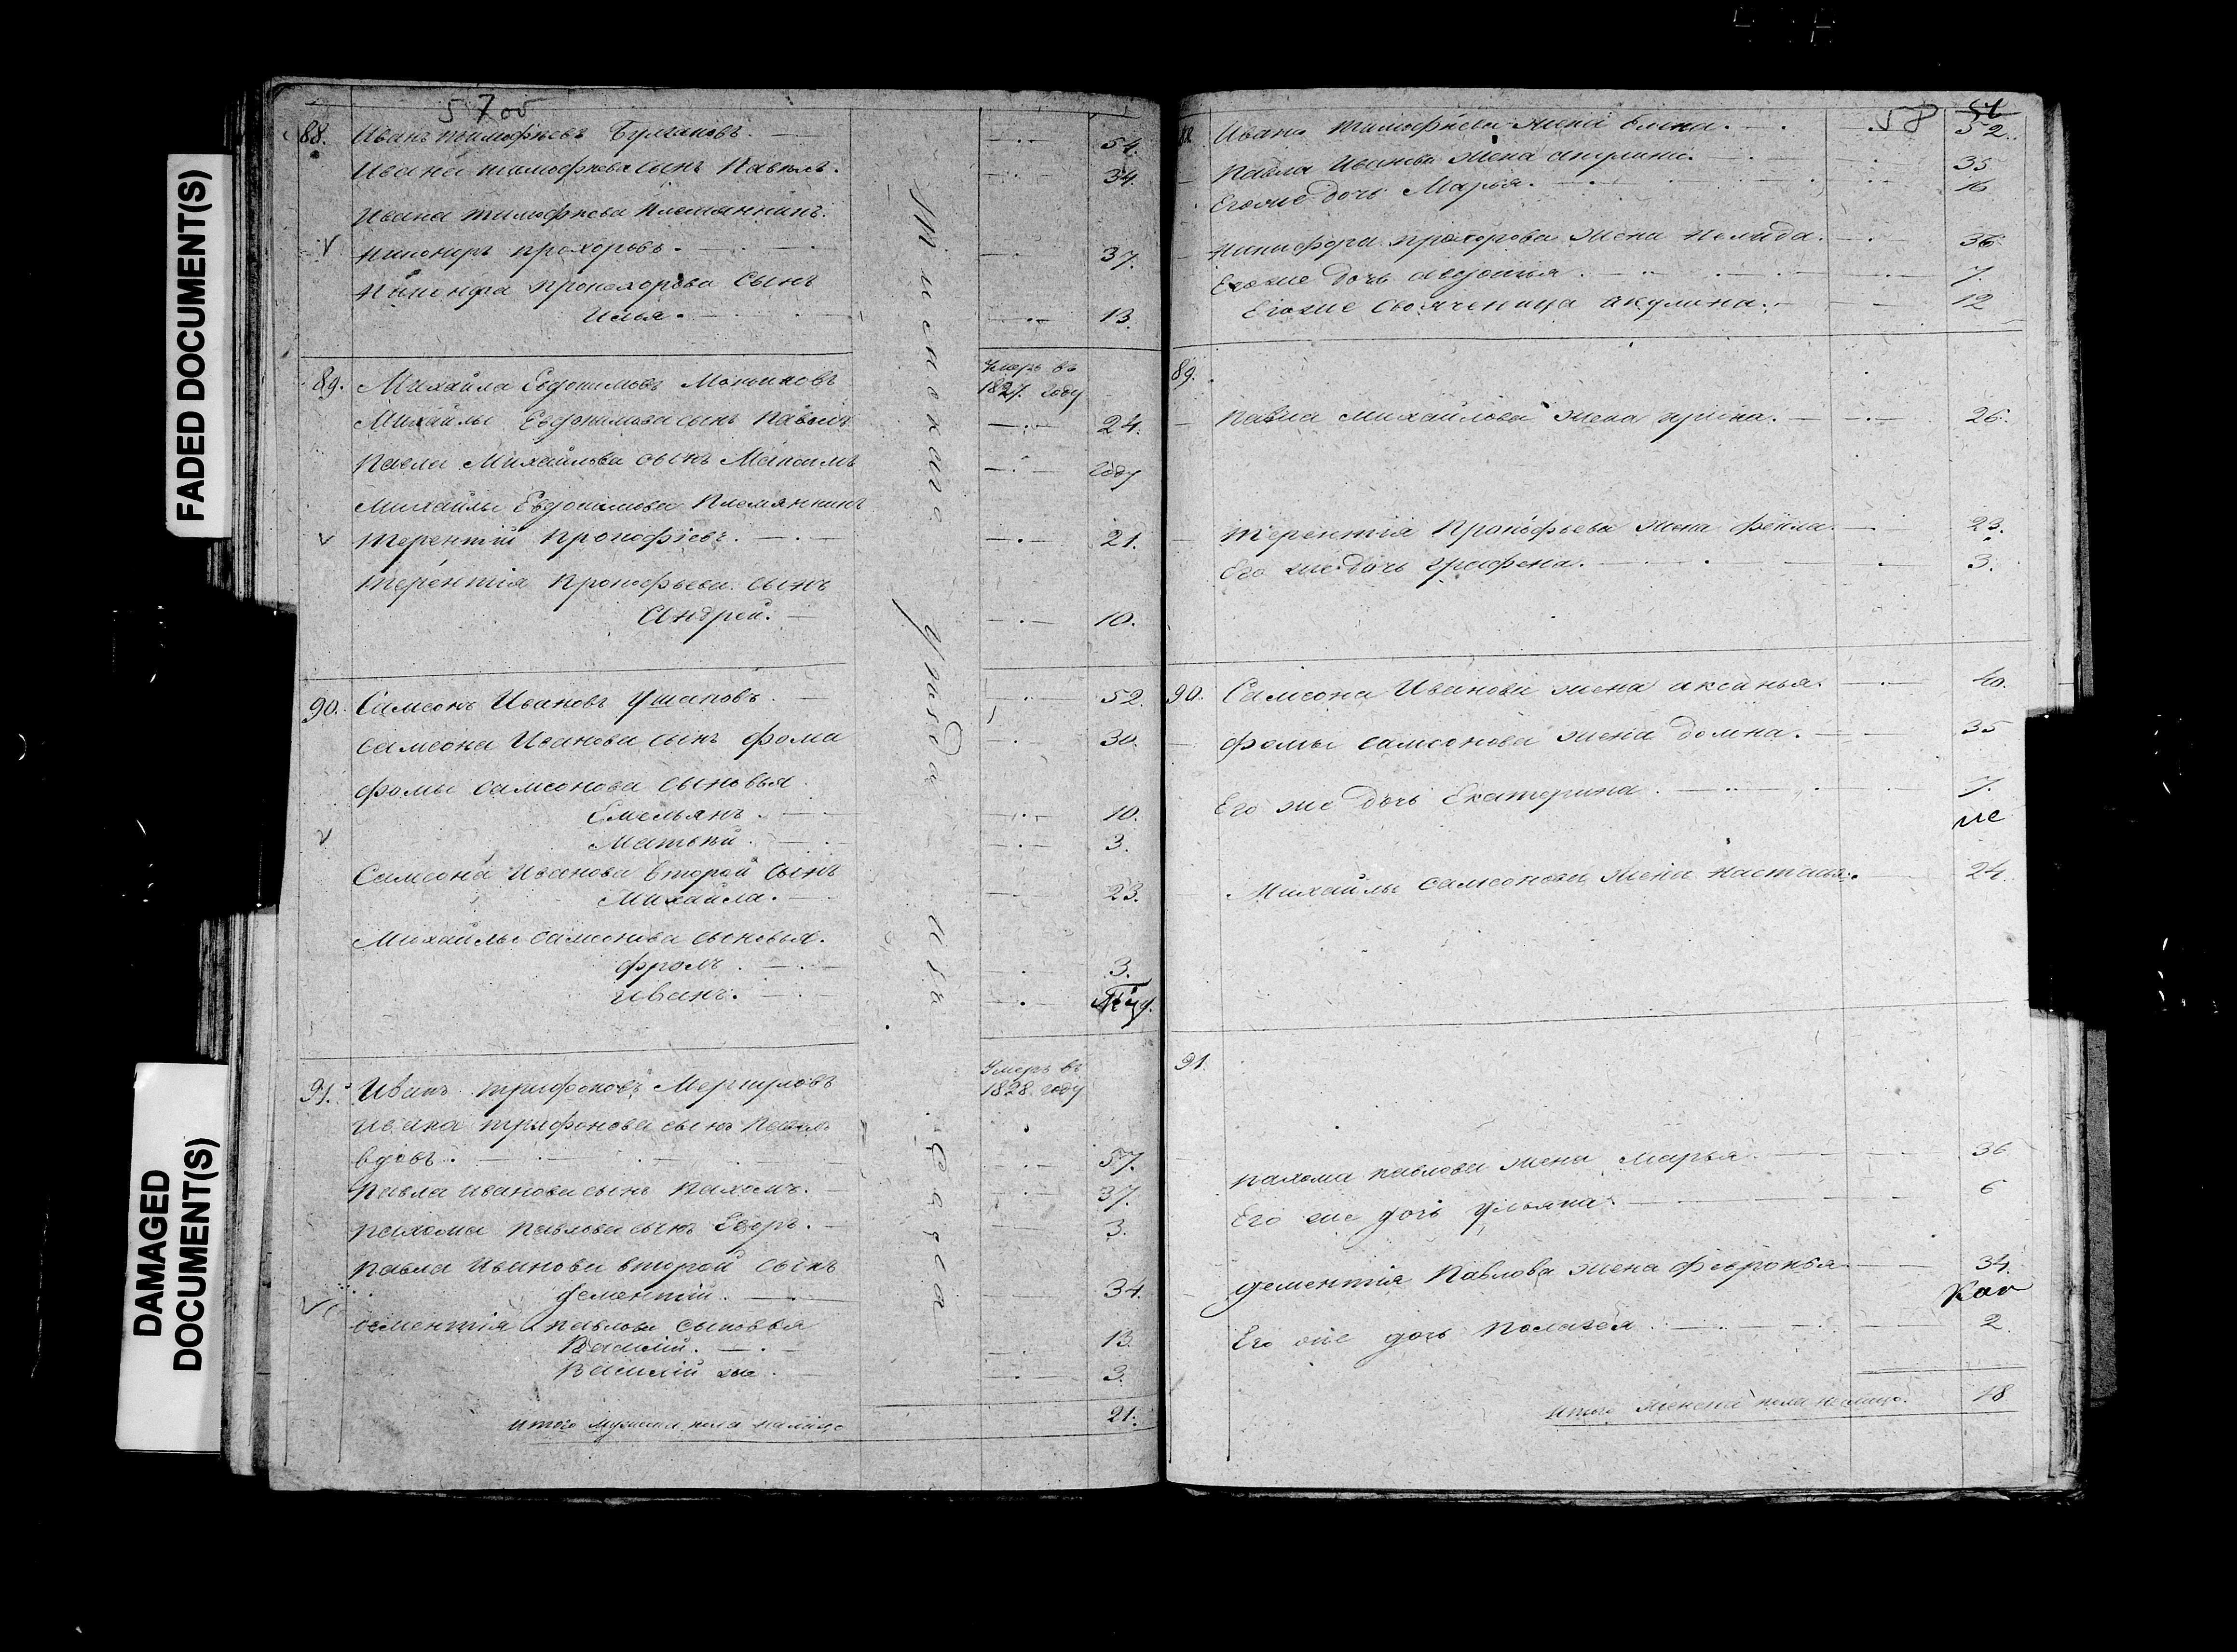 FADED DOCUMENT(S)
DAMAGED
DOCUMENT(S)
57 об
88. Иванъ тимофѣевъ Булгаковъ. 54.
Ивана тимофѣева сынъ Павелъ. 34.
Ивана тимофѣева племянникъ.
прохоровъ. 37.
сынъ
Илья. 13.
89. Михайла Евдокимовъ Умеръ въ
1827. году
Михайлы Евдокимова сынъ Павелъ 24.
Павла Михайлова сынъ Максимъ году
Михайлы Евдокимова Племянникъ
терентій прокофіевъ. 21.
терентія прокофьева сынъ
Андрей. 10.
90. Самсонъ Ивановъ Ушаковъ. 52.
самсона Иванова сынъ фома 30.
фомы самсонова сыновья
Емельянъ. 10.
Матвѣй. 3.
Самсона Иванова второй сынъ
Михайла. 23.
Михайлы самсонова сыновья.
фролъ. 3.
иванъ.
91. Иванъ трифоновъ Умеръ въ
1828. году
ивана трифонова сынъ павелъ
вдовъ. 57.
павла иванова сынъ пахомъ. 37.
пахома павлова сынъ Егоръ. 3.
павла иванова второй сынъ
дементій. 34.
дементія павлова сыновья
Василій. 13.
Василій же. 3.
итого мужеска пола налицо 21.
уѣзда
58
88. Ивана тимофѣева жена Елена. 52.
павла Иванова жена акулина. 35
Его же дочь Марья. 16
никифора прохорова жена 36.
Его же дочь авдотья. 7.
Его же свояченица акулина. 12
89.
павла михайлова жена ирина. 26.
терентія прокофьева жена фекла. 23.
Его же дочь графена. 3.
90. Самсона Иванова жена аксинья. 40.
фомы самсонова жена домна. 35
Его же дочь Екатерина. 7.
Михайлы самсонова жена настасья. 24.
91.
пахома павлова жена марья 36
Его же дочь ульяна. 6
дементія павлова жена февронья 34.
Его же дочь 2.
итого женска пола налицо. 18